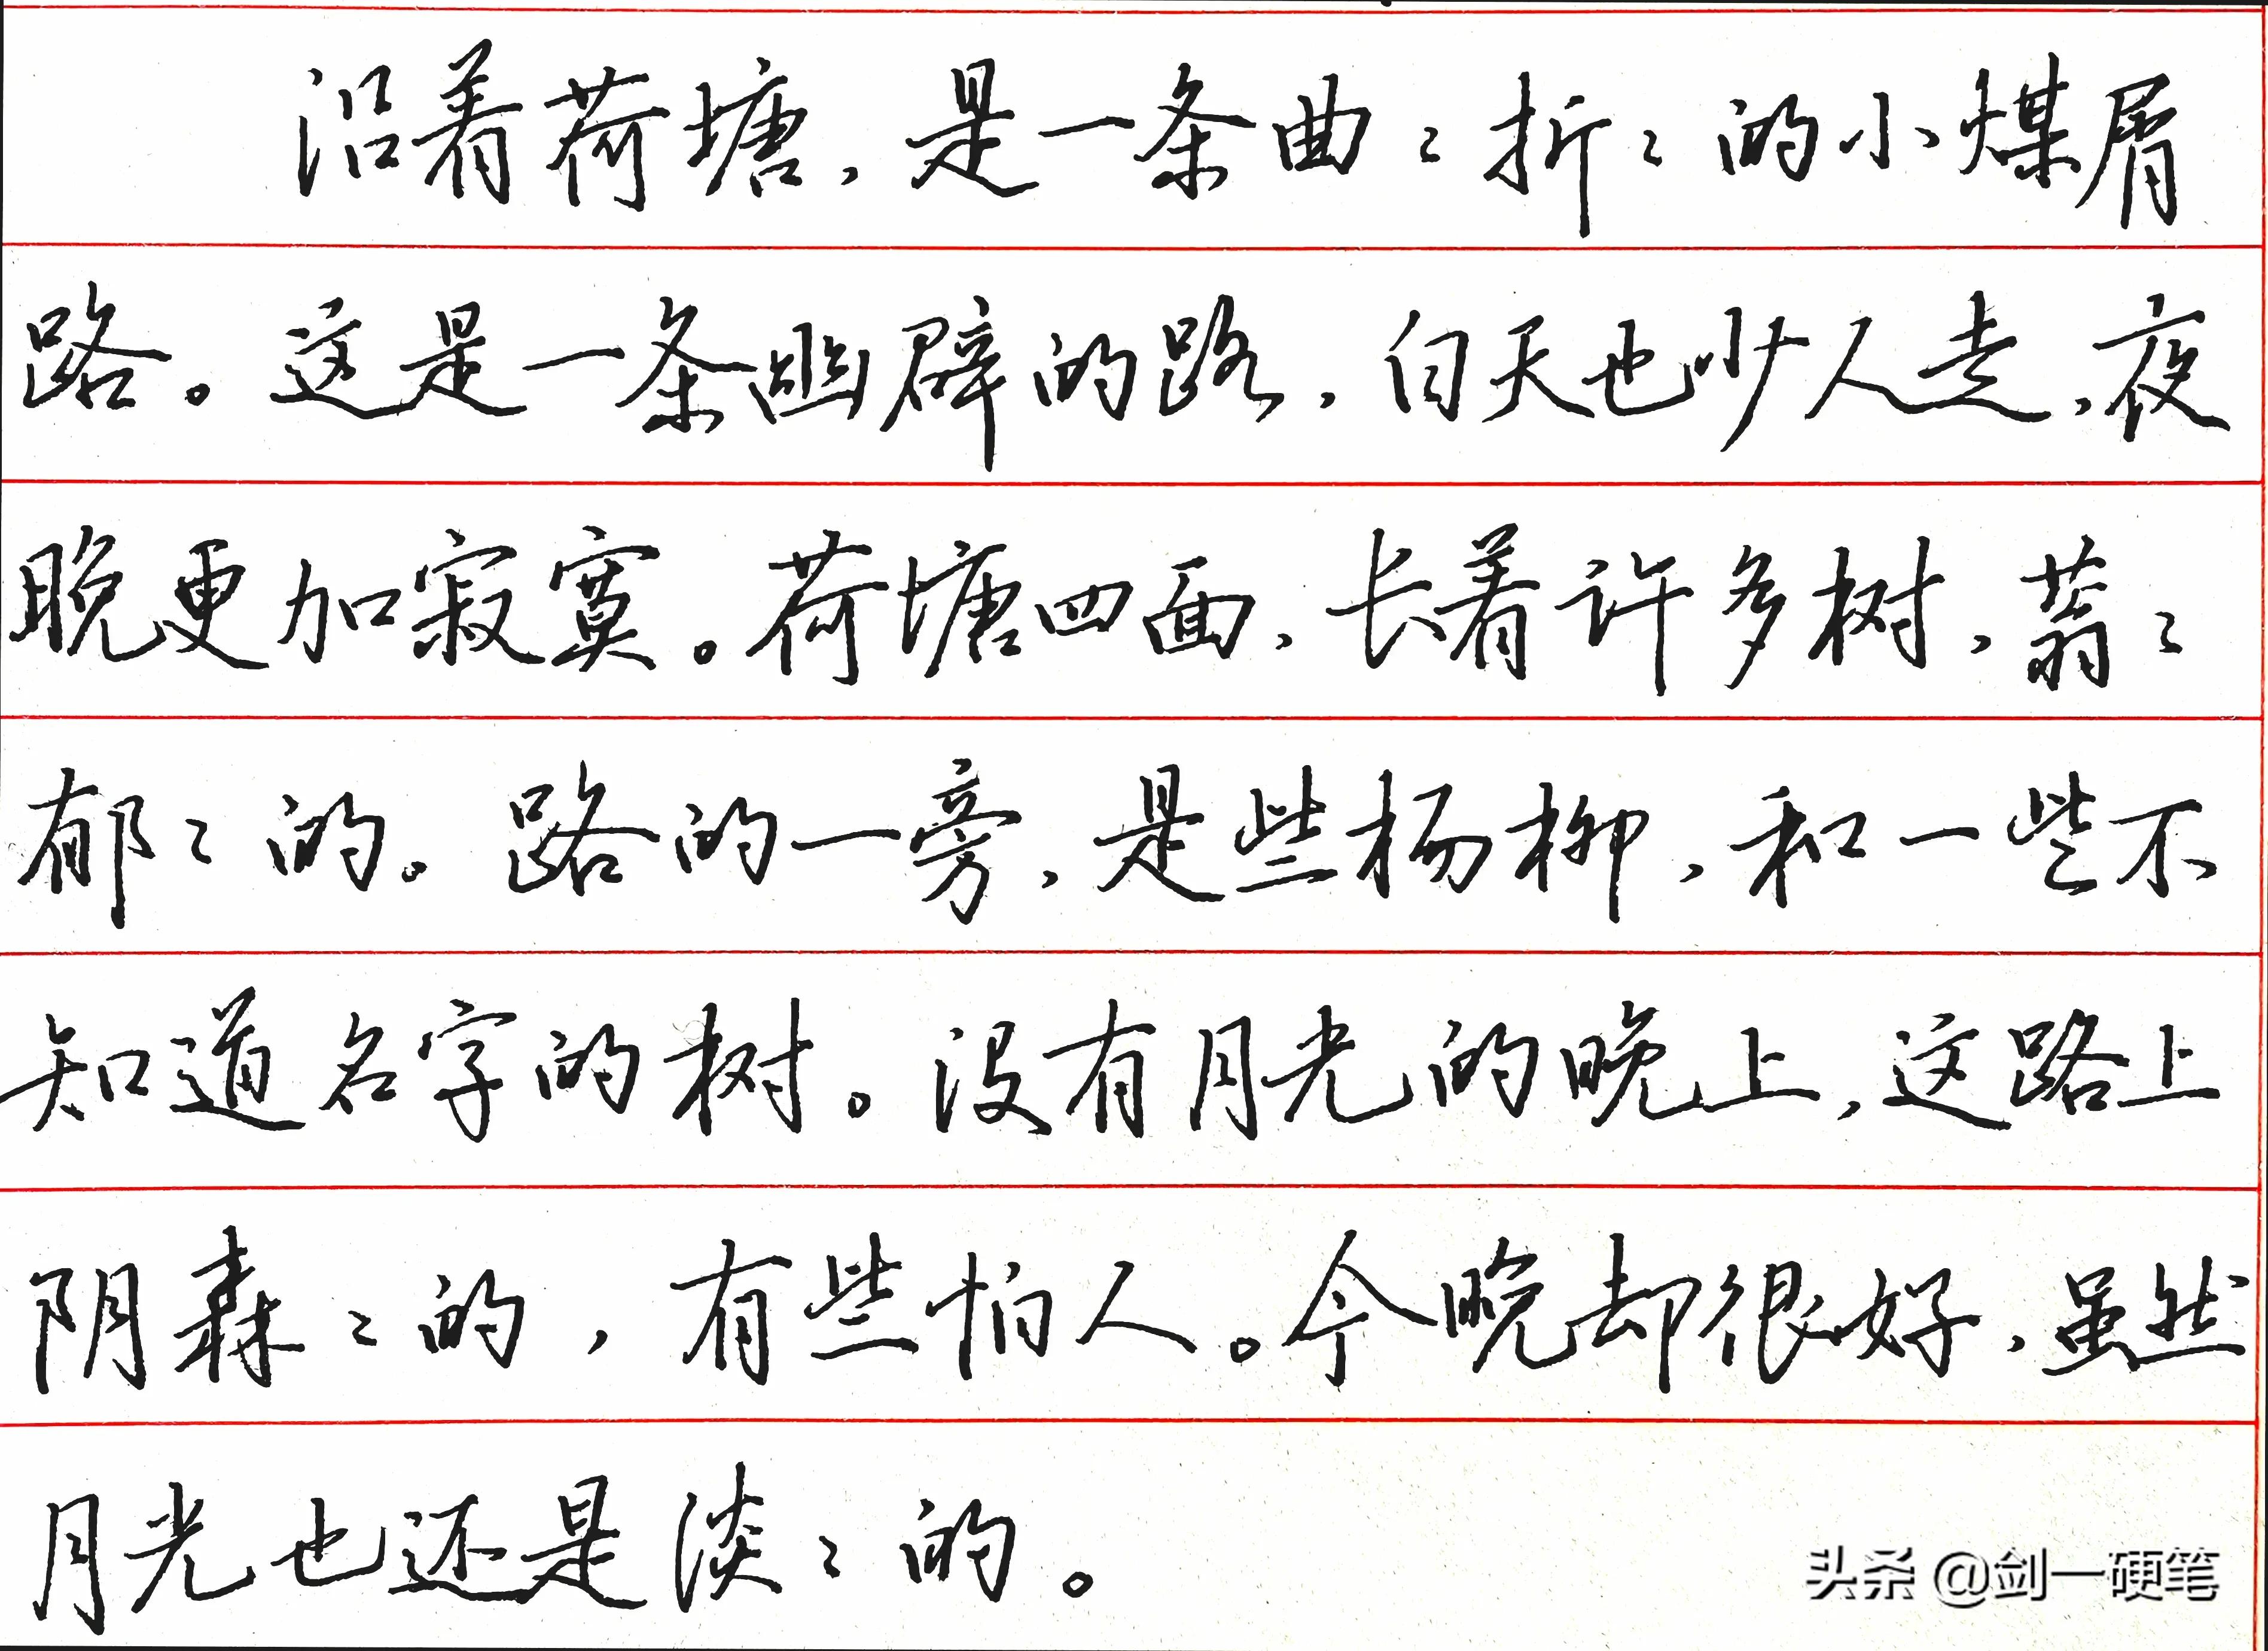 沿着荷塘，是一条曲〻折〻的小煤屑
路。这是一条幽辟的路，白天也少人走，夜
晚更加寂寞。荷塘四面，长着许多树，蓊〻
郁〻的。路的一旁，是些杨柳，和一些不
知道名字的树。没有月光的晚上，这路上
阴森〻的，有些怕人。今晚却很好，虽然
月光也还是淡〻的。
头条 @剑一硬笔